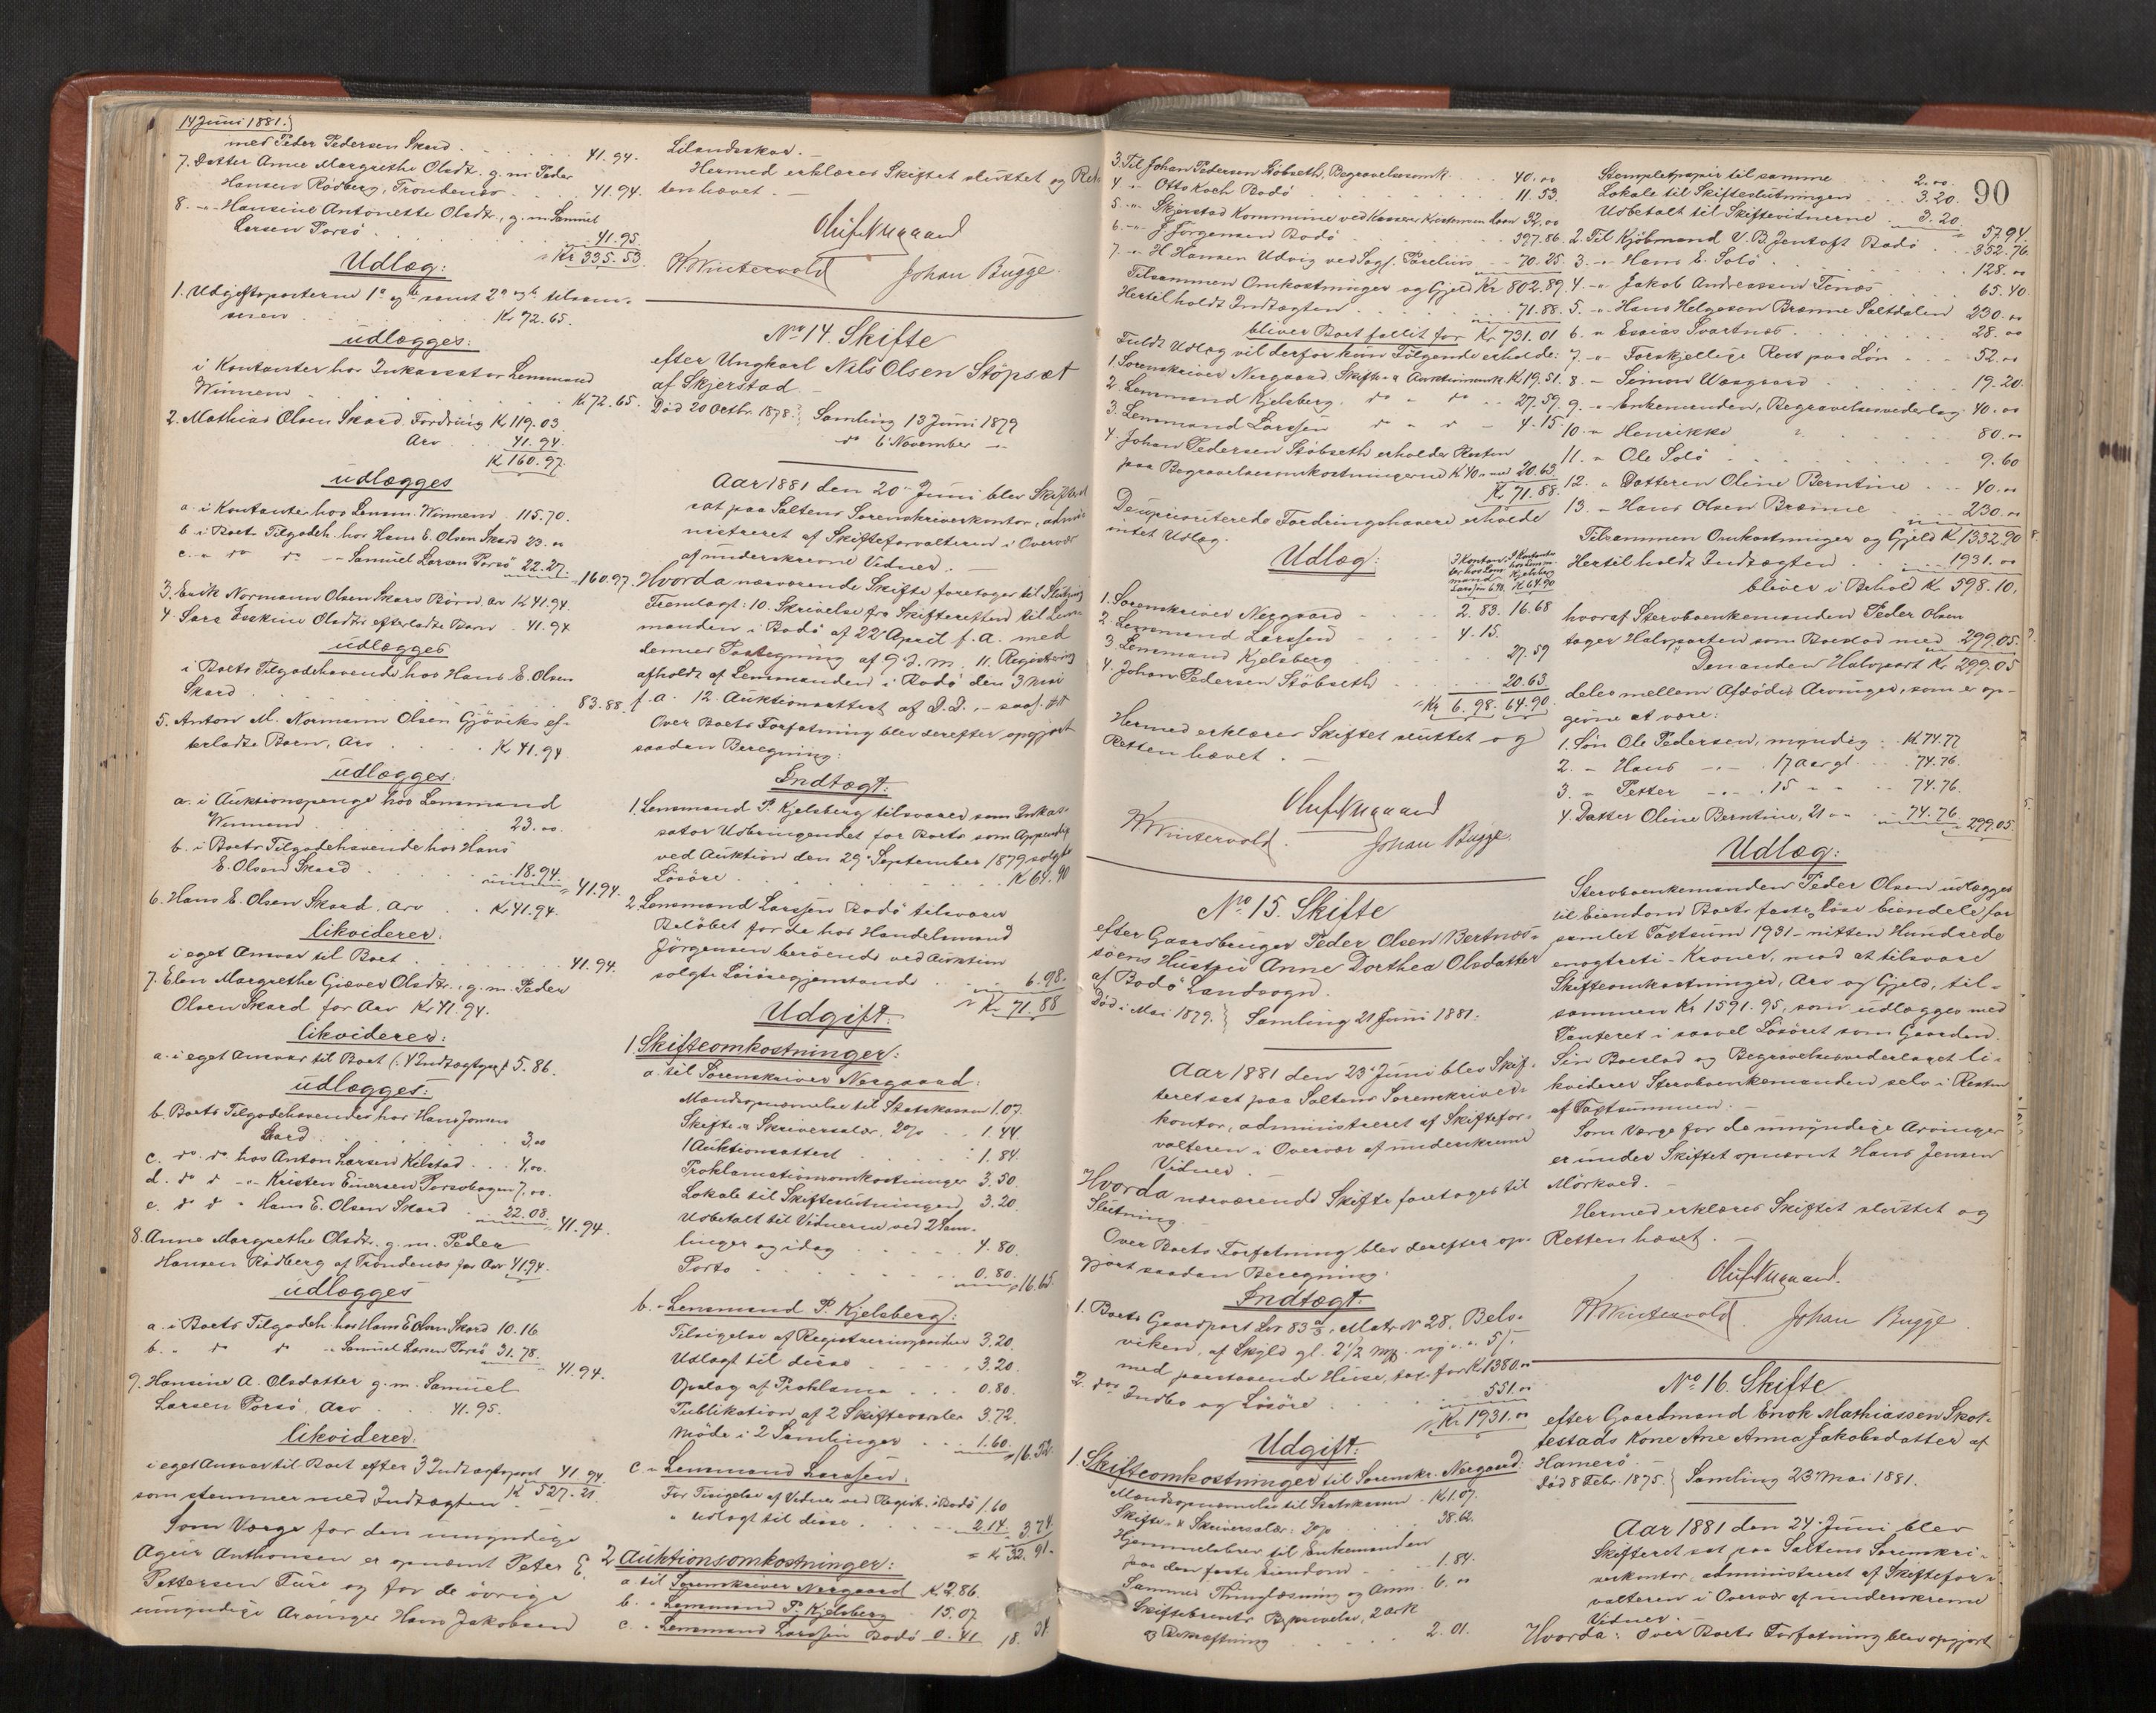 14 Juni 1881.
med Peder Pedersen Skard . . . 41.94.
7. Datter Anne Margrethe Olsdt. g. m. Peder
Hansen Rödberg, Trondenæs . . 41.94.
8. -"- Hansine Antonette Olsdt., g. m. Samuel
Larsen Porsö . . . 41.95.
Kr 335.53.
Udlæg:
1. Udgiftsposterne 1a og b samt 2a og b tilsam-
men . . . Kr 72.65.
udlægges:
i Kontanter hos Inkassator Lensmand
Winnem . . . Kr 72.65.
2. Mathias Olsen Skard. Fordring K 119.03.
Arv . . 41.94.
K 160.97.
udlægges
a. i Kontanter hos Lensm. Winnem . 115.70.
b. i Boets Tilgodeh. hos Hans E. Olsen Skard 23.00
c. " do do -"- Samuel Larsen Porsö 22.27.
160.97.
3. Erik Normann Olsen Skars Börn Arv K 41.94.
4. Sara Olsdts efterladte Barn . 41.94
udlægges
i Boets Tilgodehavende hos Hans E. Olsen
Skard . . . 83.88.
5. Anton M. Normann Olsen Gjöviks ef-
terladte Barn, Arv . . . K 41.94
udlægges:
a. i Auktionspenge hos Lensmand
Winnem . . . 23.00.
b. i Boets Tilgodehavende hos Hans
E. Olsen Skard . . . 18.94.
41.94.
6. Hans E. Olsen Skard. Arv . . K 41.94.
likviderer:
i eget Ansvar til Boet . . . 41.94.
7. Elen Margrethe Giæver Olsdt., g. m. Peder
Olsen Skard for Arv Kr 41.94.
likviderer:
a. i eget Ansvar til Boet (: 4 Indtægtspost 5.86.
udlægges:
b. Boets Tilgodehavender hos Hans Jonsen
Skard . . . 3,00
c. do. do. hos Anton Larsen Kilstad . . . 4,00.
d. do d -"- Kristen Einersen Porsobogen 7,00.
e. d d " Hans E. Olsen Skard . . 22.08.
41.94.
8. Anne Margrethe Olsdt. g. m. Peder
Hansen Rödberg af Trondenæs for Arv 41.94.
udlægges
a. i Boets Tilgodeh. hos Hans E Olsen Skard 10.16
b. " d d -"- Samuel Larsen Porsö 31.78.
41.94.
9. Hansine A. Olsdatter g. m. Samuel
Larsen Porsö, Arv . . . 41.95.
likviderer:
i eget Ansvar til Boet efter 3 Indtægtspost 41.94
K 527.21.
som stemmer med Indtægten . —
Som Værge for den umyndige
Ageur Anthonsen er opnævnt Peter E.
Pettersen Ture og for de övrige
umyndige Arvinger Hans Jakobsen
Lilandsskar. —
Hermed erklæres Skiftet sluttet og Ret-
ten hævet. —
Oluf Nergaard
K Wintervold Johan Bugge.
No 14. Skifte
efter Ungkarl Nils Olsen Stöpsæt
af Skjerstad
Död 20 Octbr. 1878.} Samling 13 Juni 1879
do 6 November -"-
Aar 1881 den 20de Juni blev Skifteret
sat paa Saltens Sorenskriverkontor, admi-
nistreret af Skifteforvalteren i Overvær
af underskrevne Vidner. —
Hvorda nærværende Skifte foretoges til Slutning
Fremlagt: 10. Skrivelse fra Skifteretten til Lens-
manden i Bodö af 22de April f. A. med
dennes Paategning af 9 d. m. 11. Registrering
afholdt af Lensmanden i Bodö den 3 Mai
f. a. 12. Auktionsattest af D. D. –
Over Boets Forfatning blev derefter opgjort
saadan Beregning:
Indtægt:
1. Lensmand P. Kjelsberg tilsvarer som Inkas-
sator Udbringendet for Boets som Appendix
ved Auktion den 29de September 1879 solgte
Lösöre . . . K 64.90
2. Lensmand Larssen Bodö tilsvarer
Belöbet for de hos Handelsmand
Jörgensen beroende ved Auktion
solgte Lösöregjenstande . . . 6.98.
Kr. 71.88
Udgift:
1. Skifteomkostninger:
a. til Sorenskriver Nergaard:
Mandsopnævnelse til Statskassen 1.07.
Skifte- & Skriversalær, 2% . . 1.44.
1 Auktionsattest . . . 1.84.
Proklamationsomkostninger 3.50.
Lokale til Skifteslutningen 3.20.
Udbetalt til Vidnerne ved 2 Sam-
linger og idag . . . 4.80.
Porto . . . 0.80.
16.65.
b. " Lensmand P. Kjelsberg:
Tilsigelse af Registreringsmænd 3.20.
Udlagt til disse . . . 3.20.
Opslag af Proklama . . . 0.80.
Publikation af 2 Skiftevarsler 3.72.
Möde i 2 Samlinger . . 1.60.
16.52.
c. " Lensmand Larssen:
For Tilsigelse af Vidner ved Registr. i Bodö 1.60
" udlagt til disse . . . 2.14.
3.74.
= K 32.91.
2 Auktionsomkostninger:
a. til Sorenskriver Nergaard K 2.86.
b. " Lensmand P. Kjelsberg 15.07.
c. " Lensmand Larssen Bodö 0.41 18.34
90
3. Til Johan Pedersen Stöbseth, Begravelsesomk. . . 40.00
4. -"- Otto Koch Bodö . . . 11.53.
5. -"- Skjerstad Kommune ved Kasserer Kristensen Laan 32.00
6. -"- J. Jörgensen Bodö . . . 397.86.
7. -"- H Hansen Udvig ved Sagf. Parelius . . 70.25.
Tilsammen Omkostninger og Gjeld Kr 802.89.
Hertil holdt Indtægten . . . 71.88.
bliver Boet fallit for Kr 731.01
Fuldt Udlæg vil derfor kun Fölgende erholde:
1. Sorenskriver Nergaard Skifte- & Auktionsomk. K 19.51.
2. Lensmand Kjelsberg. do " do . . 27.59.
3. Lensmand Larssen do " d – 4.15.
4. Johan Pedersen Stöbseth erholder Resten
paa Begravelsesomkostningerne K 40 med 20.63.
Kr 71.88.
De uprioriterede Fordringshavere erholde
intet Udlæg.
Udlæg:
I Kontanter hos Lensmand Larssen 6.98. I Kontanter hos Lensm. Kjelsberg K 64.90
1. Sorenskriver Nergaard . . . 2.83. 16.68
2. Lensmand Larssen . . . 4.15.
3. Lensmand Kjelsberg . . . 27.59
4. Johan Pedersen Stöbseth . . . 20.63.
Kr 6.98. 64.90.
Hermed erklæres Skiftet sluttet og
Retten hævet. —
Oluf Nergaard
K Wintervold. Johan Bugge.
No 15. Skifte
efter Gaardbruger Peder Olsen Bertnæs-
söens Hustru Anne Dorthea Olsdatter
af Bodö Landsogn.
Död i Mai 1879.} Samling 21 Juni 1881.
Aar 1881 den 23de Juni blev Skif-
teret sat paa Saltens Sorenskriver-
kontor, administreret af Skiftefor-
valteren i Overvær af underskrevne
Vidner. —
Hvorda nærværende Skifte foretoges til
Slutning.
Over Boets Forfatning blev derefter op-
gjort saadan Beregning:
Indtægt:
1. Boets Gaardpart Lno 83 a/b, Matr No 28, Bels-
viken, af Skyld gl. 2 1/2 mk. ny . . 5/-
med paastaaende Huse, tax. for K 1380.00
2. dos Indbo og Lösöre . . . 551.00
Kr 1931.00
Udgift:
1. Skifteomkostninger til Sorenskr. Nergaard:
Mandsopnævnelse til Statskassen . K 1.07.
Skifte- & Skriversalær: 2% . . . 38.62.
Hjemmelsbrev til Enkemanden
paa den faste Eiendom . . 1.84.
Sammes Thinglæsning og Anm. 6.00
Skiftebrevets Beskrivelse, 2 Ark
og Bekræftning . . . 2.01.
Stempletpapir til samme . . . 2.00.
Lokale til Skifteslutningen . . . 3.20.
Udbetalt til Skiftevidnerne 3.20
57.94.
2. Til Kjöbmand V. B. Jentoft Bodö . . 352.76.
3. -"- Hans E. Solö . . . 128.00
4. -"- Jakob Andreassen Tenæs . . 65.40.
5. -"- Hans Helgesen Brænne Saltdalen 230.00
6. " Esaias Svartnæs . . . 28.00
7. -"- Forskjellige Rest paa Lön . . . 52.00
8. – Simon Waagaard . . . 19.20.
9. -"- Enkemanden, Begravelsesvederlag 40.00
10. " Henrikke . . . 80.00
11. " Ole Solö . . . 9.60
12. " Datteren Oline Berntine . . . 40.00
13. – Hans Olsen Brænne . . . 230.00
Tilsammen Omkostninger og Gjeld K 1332.90
Hertil holdt Indtægten . . 1931.00
bliver i Behold Kr. 598.10.
hvoraf Stervboenkemanden Peder Olsen
tager Halvparten som Boeslod med 299.05.
Den anden Halvpart Kr. 299.05
deles mellem Afdödes Arvinger, som er op-
givne at være:
1. Sön Ole Pedersen, myndig . K 74.77
2. – Hans -"- . 17 Aar gl. . . 74.76.
3. – Petter -"- . 15 – – . . 74.76.
4. Datter Oline Berntine, 21 " " . 74.76.
299.05.
Udlæg:
Stervboenkemanden Peder Olsen udlægges
til Eiendom Boets faste & löse Eiendele for
samlet Taxtsum 1931 – nitten Hundrede
enogtreti – Kroner, mod at tilsvare
Skifteomkostninger, Arv og Gjeld, til-
sammen Kr 1591.95, som udlægges med
Panteret i saavel Lösöret som Gaarden.
Sin Boeslod og Begravelsesvederlaget li-
kviderer Stervboenkemanden selv i Resten
af Taxtsummen. —
Som Værge for de umyndige Arvinger
er under Skiftet opnævnt Hans Jensen
Mörkved. —
Hermed erklæres Skiftet sluttet og
Retten hævet. —
Oluf Nergaard.
K Wintervold. Johan Bugge.
No 16. Skifte
efter Gaardmand Enok Mathiassen Skot-
testads Kone Ane Anna Jakobsdatter af
Hamerö
Död 8 Febr. 1875.} Samling 23de Mai 1881.
Aar 1881 den 24de Juni blev
Skifteret sat paa Saltens Sorenskri-
verkontor, administreret af Skiftefor-
valteren i Overvær af underskrevne
Vidner. —
Hvorda: Over Boets Forfatning blev opgjort